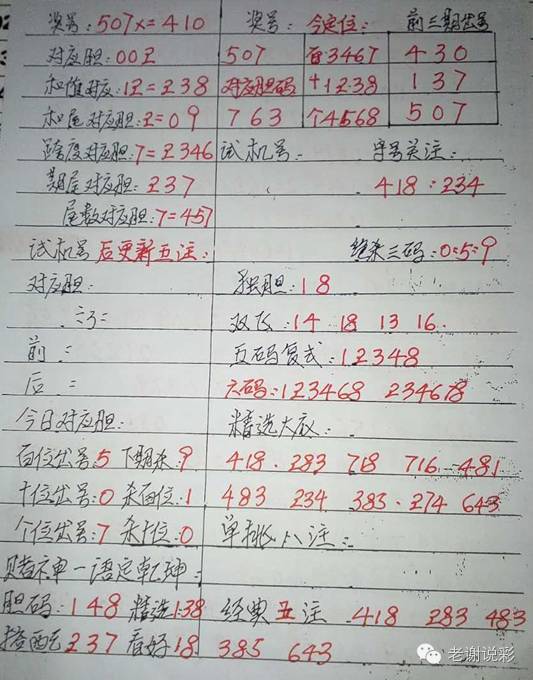 奖号:507x=410 奖号: 今定位: 前三期出号
对应胆:002 507 百3467 430
和值对应:12=238 对应胆码 十1238 137
和尾对应胆:2=09 763 个4568 507
跨度对应胆:7=2346 试机号: 字号关注:
期尾对应胆:237 418:234
尾数对应胆:7=457
试机号后更新五注: 绝杀三码:0:5:9
对应胆: 独胆:18
: 双飞:14 18 13 16
前: 五码复式:12348
后: 六码:123468 234678
今日对应胆: 精选大底:
百位出号:5 下期杀:9 418. 283 718 716 481
十位出号:0 杀百位:1 483 234 383. 274 643
个位出号:7 杀十位:0 单挑八注:
赌神一语定乾坤:
胆码:148 精选138 经典五注 418 283 483
搭配237 看好18 385 643
老谢说彩